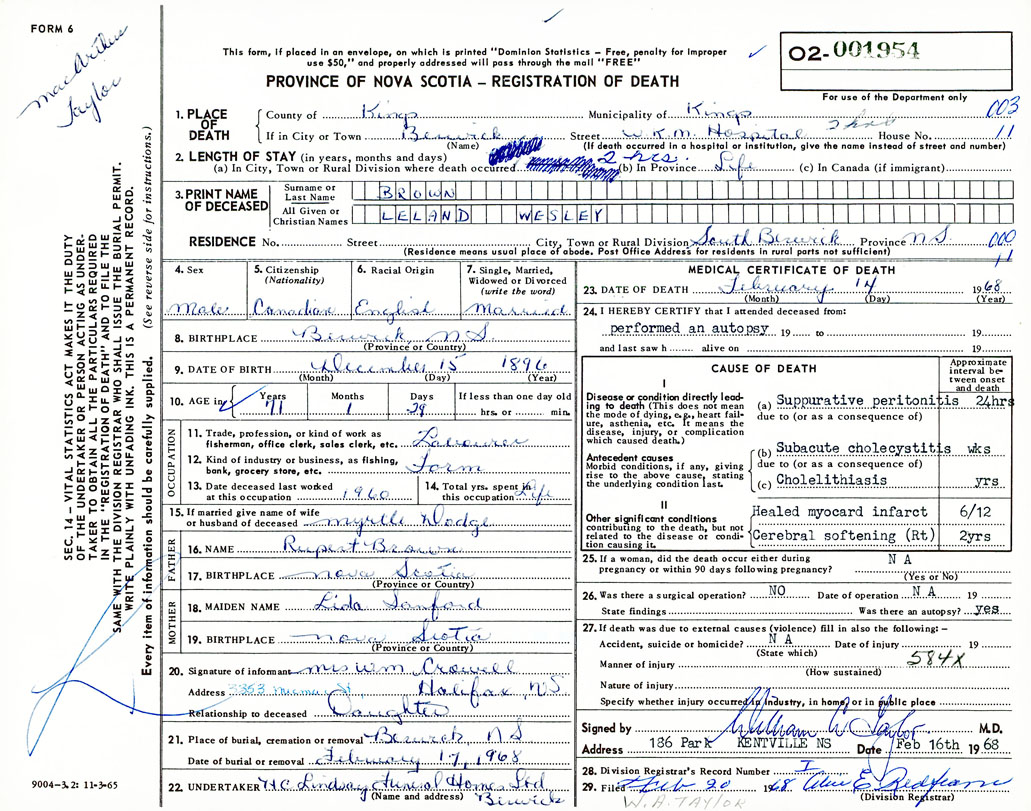 FORM 6
MacArthur
Taylor
This form, if placed in an envelope, on which is printed "Dominion Statistics – Free, penalty for improper
use $50," and properly addressed will pass through the mail "FREE"
PROVINCE OF NOVA SCOTIA – REGISTRATION OF DEATH
O2-001954
For use of the Department only
SEC. 14 – VITAL STATISTICS ACT MAKES IT THE DUTY
OF THE UNDERTAKER OR PERSON ACTING AS UNDER-
TAKER TO OBTAIN ALL THE PARTICULARS REQUIRED
IN THE "REGISTRATION OF DEATH" AND TO FILE THE
SAME WITH THE DIVISION REGISTRAR WHO SHALL ISSUE THE BURIAL PERMIT.
WRITE PLAINLY WITH UNFADING INK. THIS IS A PERMANENT RECORD.
Every item of information should be carefully supplied. (See reverse side for instructions.)
1. PLACE OF DEATH County of Kings Municipality of Kings 003
If in City or Town Berwick Street W.K.M. Hospital 2 hrs House No. 11
(Name) (If death occurred in a hospital or institution, give the name instead of street and number)
2. LENGTH OF STAY (in years, months and days)
(a) In City, Town or Rural Division where death occurred 2 hrs. (b) In Province Life (c) In Canada (if immigrant)
3. PRINT NAME OF DECEASED Surname or Last Name BROWN
All Given or Christian Names LELAND WESLEY
RESIDENCE No. Street City, Town or Rural Division South Berwick Province N.S. 000
(Residence means usual place of abode. Post Office Address for residents in rural parts not sufficient) 11
4. Sex Male
5. Citizenship (Nationality) Canadian
6. Racial Origin English
7. Single, Married, Widowed or Divorced (write the word) Married
8. BIRTHPLACE Berwick, N.S.
(Province or Country)
9. DATE OF BIRTH December 15 1896
(Month) (Day) (Year)
10. AGE in Years 71 Months 1 Days 29 If less than one day old hrs. or min.
OCCUPATION
11. Trade, profession, or kind of work as fisherman, office clerk, sales clerk, etc. Labourer
12. Kind of industry or business, as fishing, bank, grocery store, etc. Farm
13. Date deceased last worked at this occupation 1960
14. Total yrs. spent in this occupation Life
15. If married give name of wife or husband of deceased Myrtle Dodge
FATHER
16. NAME Rupert Brown
17. BIRTHPLACE Nova Scotia
(Province or Country)
MOTHER
18. MAIDEN NAME Lida Sanford
19. BIRTHPLACE Nova Scotia
(Province or Country)
20. Signature of informant Mrs Wm Crowell
Address 3353 St. Halifax, NS
Relationship to deceased Daughter
21. Place of burial, cremation or removal Berwick, N S
Date of burial or removal February 17, 1968
22. UNDERTAKER H.C. Lindsay Funeral Home Ltd
(Name and address) Berwick
9004-3.2: 11-3-65
MEDICAL CERTIFICATE OF DEATH
23. DATE OF DEATH February 14 1968
(Month) (Day) (Year)
24. I HEREBY CERTIFY that I attended deceased from:
performed an autopsy 19 to 19
and last saw h alive on 19
CAUSE OF DEATH
Approximate interval between onset and death
I
Disease or condition directly leading to death (This does not mean the mode of dying, e.g., heart failure, asthenia, etc. It means the disease, injury, or complication which caused death.)
(a) Suppurative peritonitis 24hrs
due to (or as a consequence of)
Antecedent causes
Morbid conditions, if any, giving rise to the above cause, stating the underlying condition last.
(b) Subacute cholecystitis wks
due to (or as a consequence of)
(c) Cholelithiasis yrs
II
Other significant conditions contributing to the death, but not related to the disease or condition causing it.
Healed myocard infarct 6/12
Cerebral softening (Rt) 2yrs
25. If a woman, did the death occur either during pregnancy or within 90 days following pregnancy? N A
(Yes or No)
26. Was there a surgical operation? NO Date of operation N A 19
State findings Was there an autopsy? yes
27. If death was due to external causes (violence) fill in also the following: –
Accident, suicide or homicide? N A Date of injury 19
(State which)
Manner of injury 584X
(How sustained)
Nature of injury
Specify whether injury occurred in industry, in home, or in public place
Signed by William A Taylor M.D.
Address 186 Park KENTVILLE NS Date Feb 16th 1968
28. Division Registrar's Record Number I
29. Filed Feb 20 1968
(Division Registrar)
W. A. TAYLOR